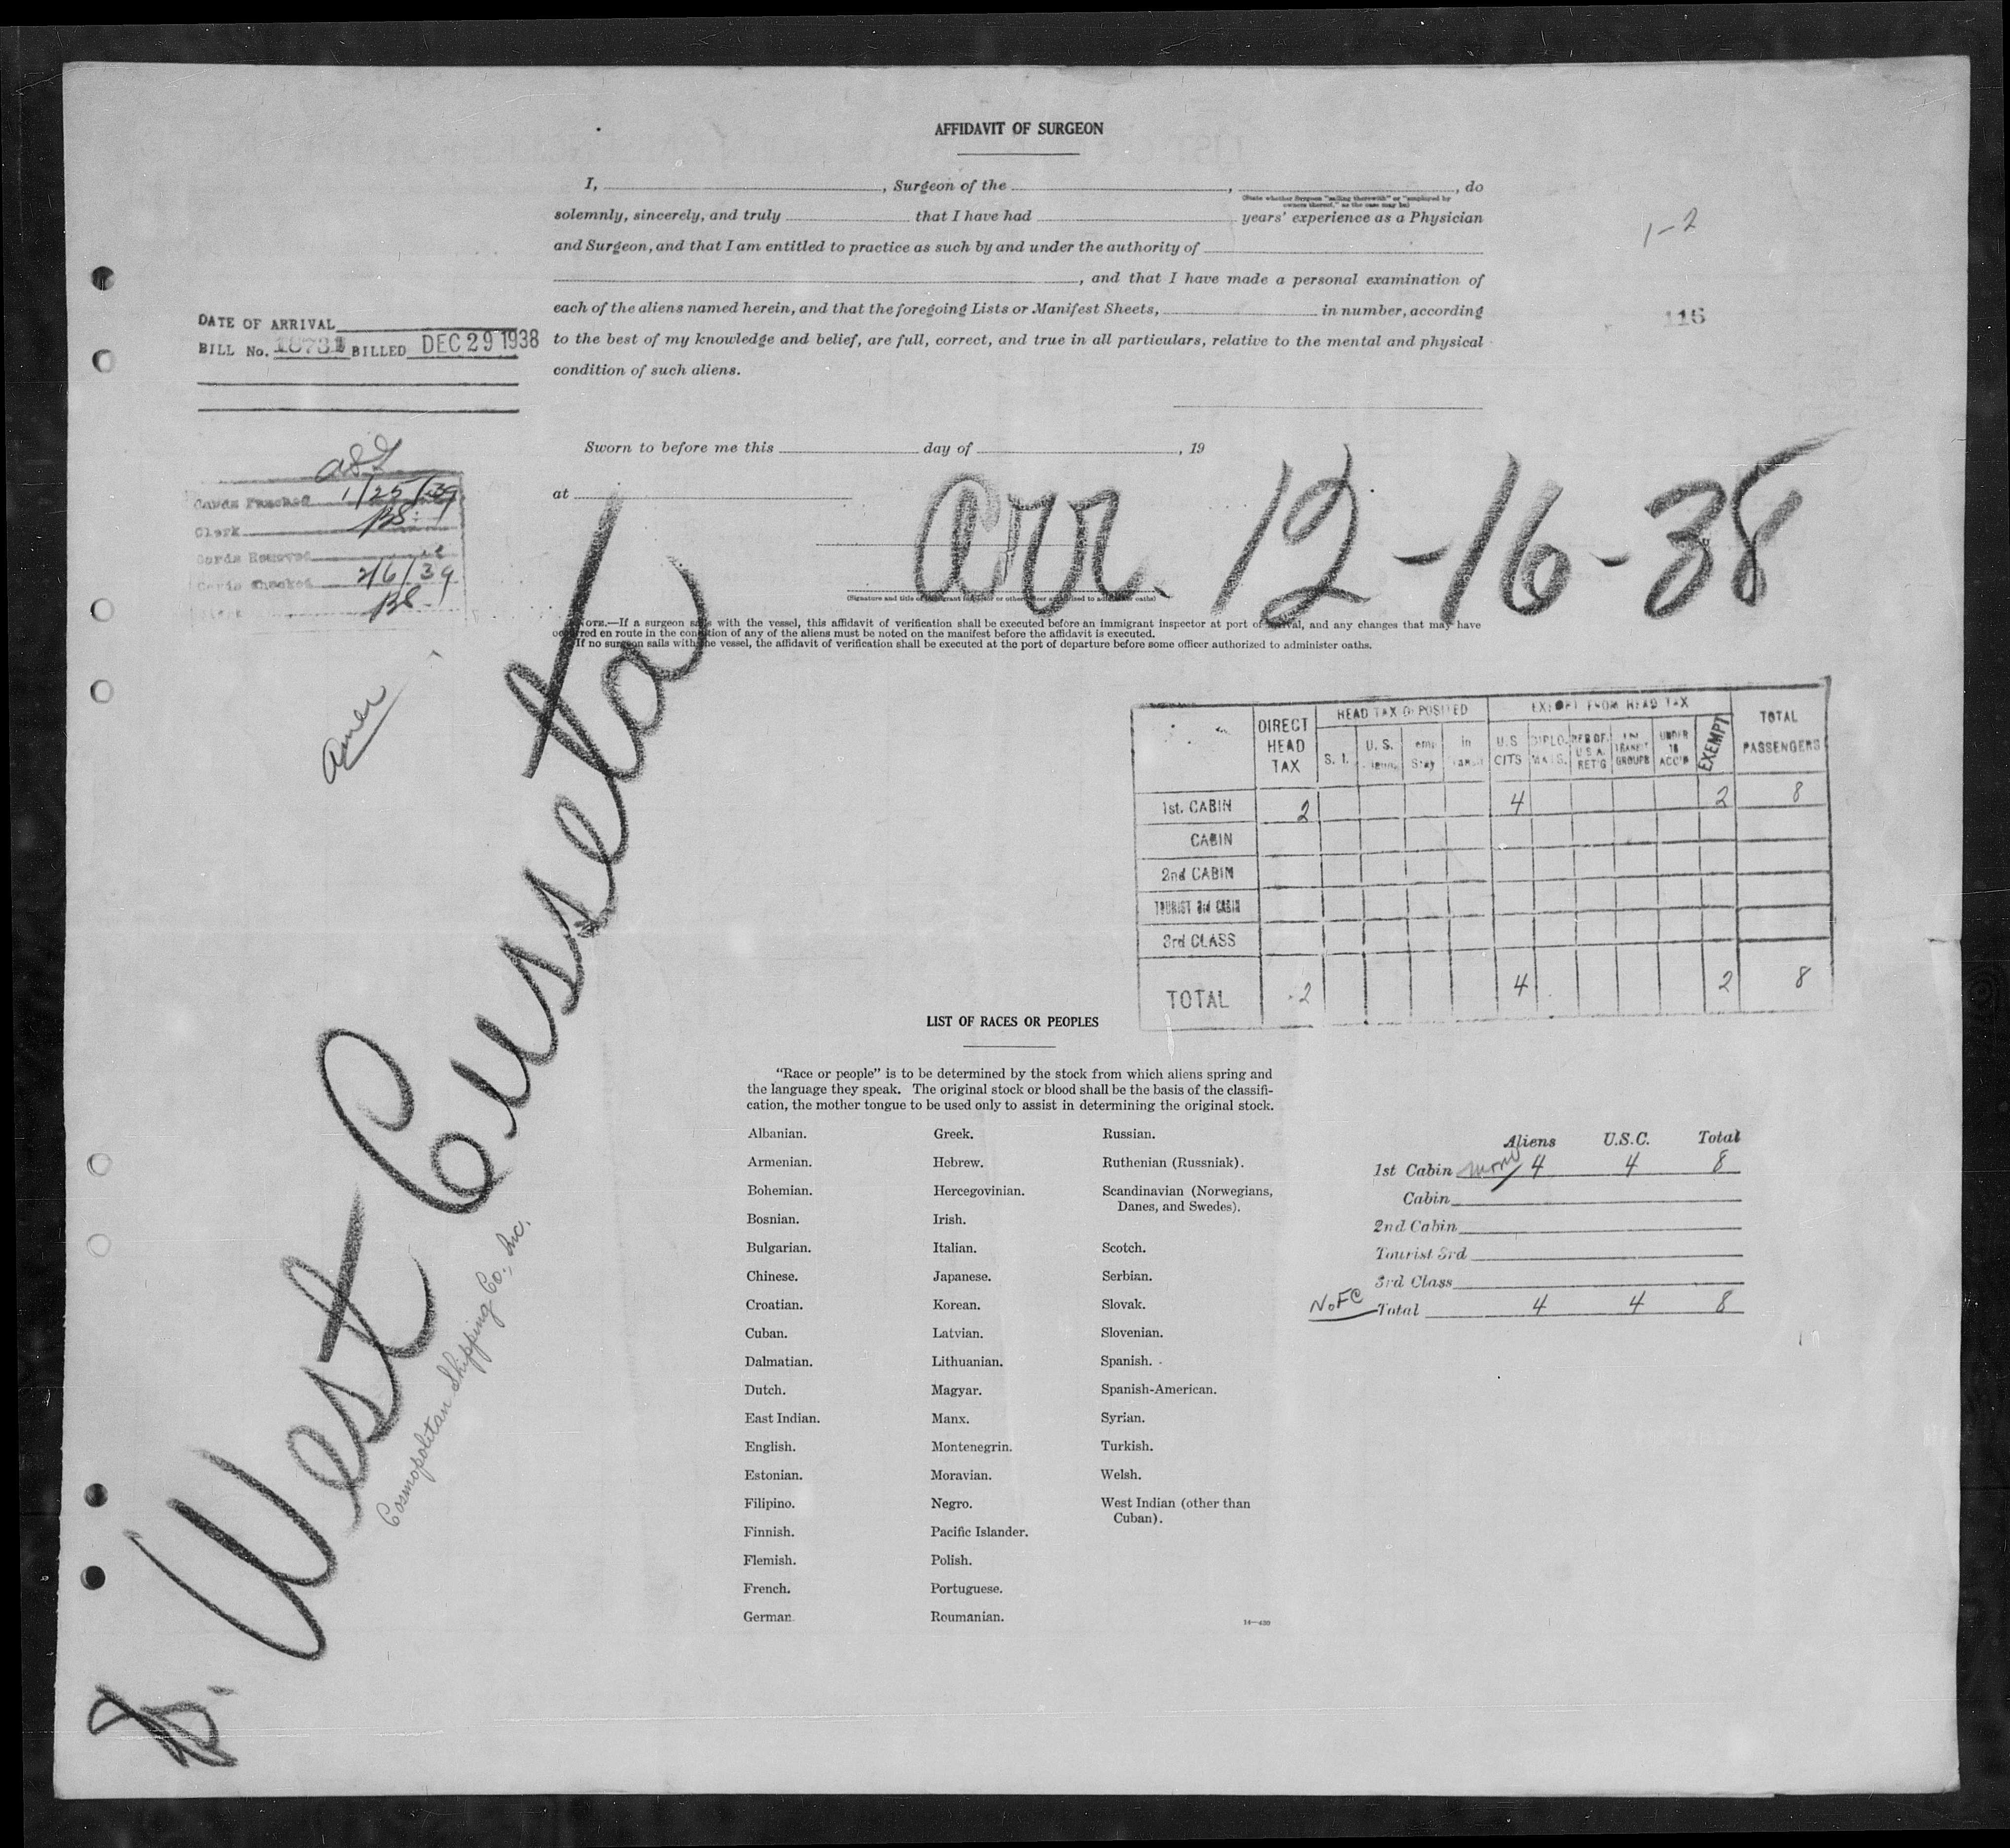 AFFIDAVIT OF SURGEON
I, , Surgeon of the , , do
(State whether Surgeon "sailing therewith" or "employed by
owners thereof," as the case may be)
solemnly, sincerely, and truly that I have had years' experience as a Physician
and Surgeon, and that I am entitled to practice as such by and under the authority of
, and that I have made a personal examination of
each of the aliens named herein, and that the foregoing Lists or Manifest Sheets, in number, according
to the best of my knowledge and belief, are full, correct, and true in all particulars, relative to the mental and physical
condition of such aliens.
1-2
115
DATE OF ARRIVAL
BILL No. BILLED DEC 29 1938
Sworn to before me this day of , 19
at
Cards Punched 1/25/39
Clerk BS
Cards Removed
Cards Checked 2/6/39
Clerk BS
arr. 12-16-38
(Signature and title of immigrant inspector or other officer authorized to administer oaths)
NOTE.—If a surgeon sails with the vessel, this affidavit of verification shall be executed before an immigrant inspector at port of arrival, and any changes that may have
occurred en route in the condition of any of the aliens must be noted on the manifest before the affidavit is executed.
If no surgeon sails with the vessel, the affidavit of verification shall be executed at the port of departure before some officer authorized to administer oaths.
Amer
S. West Cusseta
Cosmopolitan Shipping Co., Inc.
DIRECT HEAD TAX
HEAD TAX DEPOSITED
EXEMPT FROM HEAD TAX
TOTAL PASSENGERS
S. I.
U. S.
Stay
in
U.S CITS
DIPLO-MATS.
RES OF U S A. RET'G
IN TRANSIT GROUPS
UNDER 16 ACC'D
EXEMPT
1st. CABIN 2 4 2 8
CABIN
2nd CABIN
TOURIST 3rd CABIN
3rd CLASS
TOTAL 2 4 2 8
LIST OF RACES OR PEOPLES
"Race or people" is to be determined by the stock from which aliens spring and
the language they speak. The original stock or blood shall be the basis of the classifi-
cation, the mother tongue to be used only to assist in determining the original stock.
Albanian.
Armenian.
Bohemian.
Bosnian.
Bulgarian.
Chinese.
Croatian.
Cuban.
Dalmatian.
Dutch.
East Indian.
English.
Estonian.
Filipino.
Finnish.
Flemish.
French.
German.
Greek.
Hebrew.
Hercegovinian.
Irish.
Italian.
Japanese.
Korean.
Latvian.
Lithuanian.
Magyar.
Manx.
Montenegrin.
Moravian.
Negro.
Pacific Islander.
Polish.
Portuguese.
Roumanian.
Russian.
Ruthenian (Russniak).
Scandinavian (Norwegians,
Danes, and Swedes).
Scotch.
Serbian.
Slovak.
Slovenian.
Spanish.
Spanish-American.
Syrian.
Turkish.
Welsh.
West Indian (other than
Cuban).
14—430
Aliens U.S.C. Total
1st Cabin 4 4 8
Cabin
2nd Cabin
Tourist 3rd
3rd Class
No FC Total 4 4 8